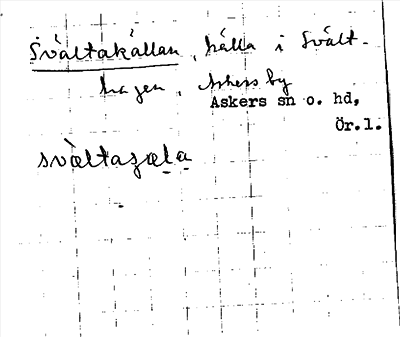 Svältakällan, källa i Svält-
hagen, Askers by
Askers sn o. hd,
Ör.l.
svæltaʒæla